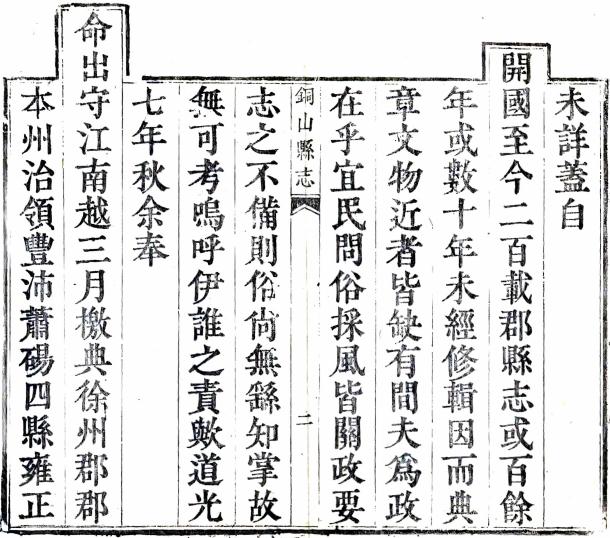 未詳蓋自
開國至今二百載郡縣志或百餘
年或數十年未經修輯因而典
章文物近者皆缺有間夫爲政
在乎宜民問俗採風皆關政要
銅山縣志 二
志之不備則俗尚無繇知掌故
無可考嗚呼伊誰之責歟道光
七年秋余奉
命出守江南越三月檄典徐州郡郡
本州治領豐沛蕭碭四縣雍正